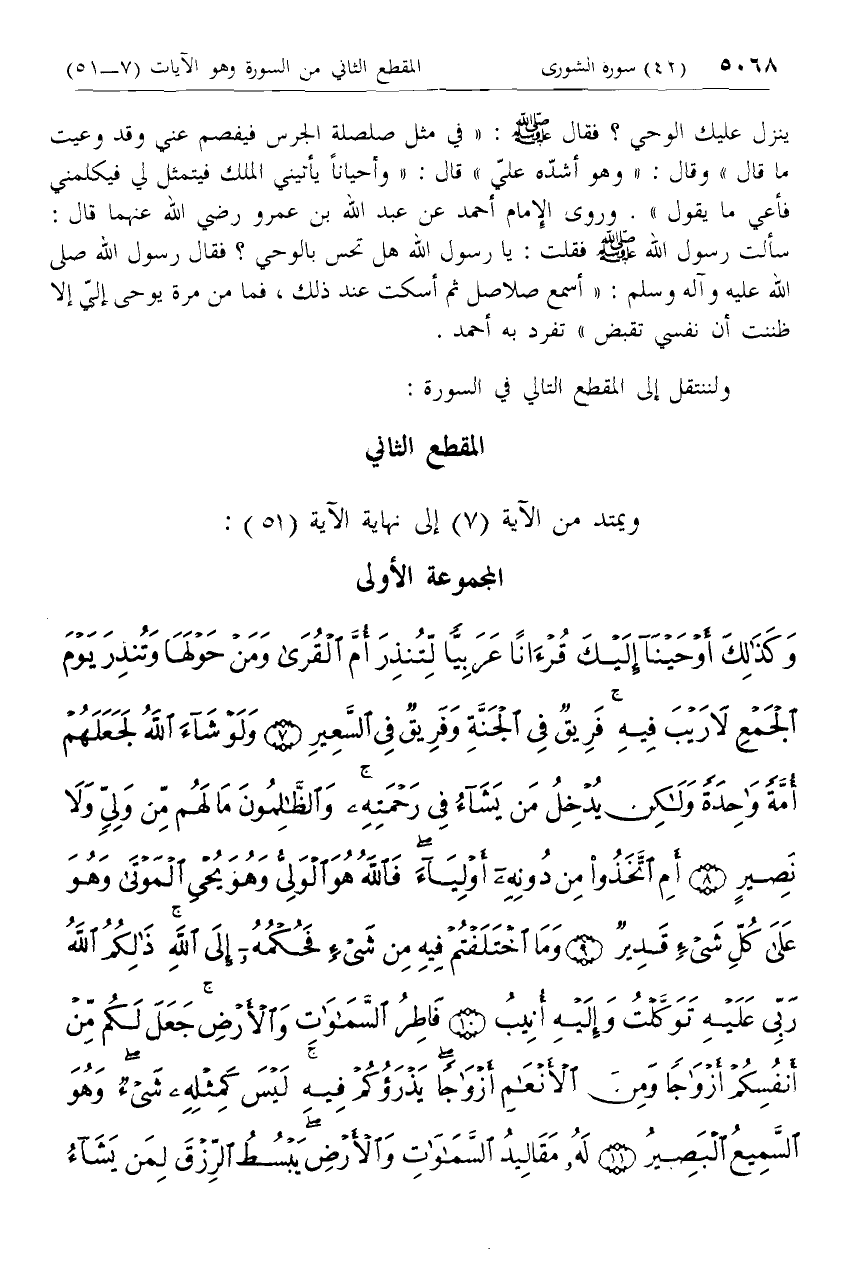 ٥٠٦٨ (٤٢) سورة الشورى المقطع الثاني من السورة وهو الآيات (٧ــ٥١)
ينزل عليك الوحي ؟ فقال ﷺ : « في مثل صلصلة الجرس فيفصم عني وقد وعيت
ما قال » وقال : « وهو أشدّه عليّ » قال : « وأحياناً يأتيني الملك فيتمثل لي فيكلمني
فأعي ما يقول » . وروى الإمام أحمد عن عبد الله بن عمرو رضي الله عنهما قال :
سألت رسول الله ﷺ فقلت : يا رسول الله هل تحس بالوحي ؟ فقال رسول الله صلى
الله عليه وآله وسلم : « أسمع صلاصل ثم أسكت عند ذلك ، فما من مرة يوحى إليّ إلا
ظننت أن نفسي تقبض » تفرد به أحمد .
ولننتقل إلى المقطع التالي في السورة :
المقطع الثاني
ويمتد من الآية (٧) إلى نهاية الآية (٥١) :
المجموعة الأولى
وَكَذَٰلِكَ أَوْحَيْنَآ إِلَيْكَ قُرْءَانًا عَرَبِيًّا لِّتُنذِرَ أُمَّ ٱلْقُرَىٰ وَمَنْ حَوْلَهَا وَتُنذِرَ يَوْمَ
ٱلْجَمْعِ لَا رَيْبَ فِيهِ ۚ فَرِيقٌ فِى ٱلْجَنَّةِ وَفَرِيقٌ فِى ٱلسَّعِيرِ ۝٧ وَلَوْ شَآءَ ٱللَّهُ لَجَعَلَهُمْ
أُمَّةً وَٰحِدَةً وَلَٰكِن يُدْخِلُ مَن يَشَآءُ فِى رَحْمَتِهِۦ ۚ وَٱلظَّٰلِمُونَ مَا لَهُم مِّن وَلِىٍّ وَلَا
نَصِيرٍ ۝٨ أَمِ ٱتَّخَذُوا۟ مِن دُونِهِۦٓ أَوْلِيَآءَ ۖ فَٱللَّهُ هُوَ ٱلْوَلِىُّ وَهُوَ يُحْىِ ٱلْمَوْتَىٰ وَهُوَ
عَلَىٰ كُلِّ شَىْءٍ قَدِيرٌ ۝٩ وَمَا ٱخْتَلَفْتُمْ فِيهِ مِن شَىْءٍ فَحُكْمُهُۥٓ إِلَى ٱللَّهِ ۚ ذَٰلِكُمُ ٱللَّهُ
رَبِّى عَلَيْهِ تَوَكَّلْتُ وَإِلَيْهِ أُنِيبُ ۝١٠ فَاطِرُ ٱلسَّمَٰوَٰتِ وَٱلْأَرْضِ ۚ جَعَلَ لَكُم مِّنْ
أَنفُسِكُمْ أَزْوَٰجًا وَمِنَ ٱلْأَنْعَٰمِ أَزْوَٰجًا ۖ يَذْرَؤُكُمْ فِيهِ ۚ لَيْسَ كَمِثْلِهِۦ شَىْءٌ ۖ وَهُوَ
ٱلسَّمِيعُ ٱلْبَصِيرُ ۝١١ لَهُۥ مَقَالِيدُ ٱلسَّمَٰوَٰتِ وَٱلْأَرْضِ ۖ يَبْسُطُ ٱلرِّزْقَ لِمَن يَشَآءُ